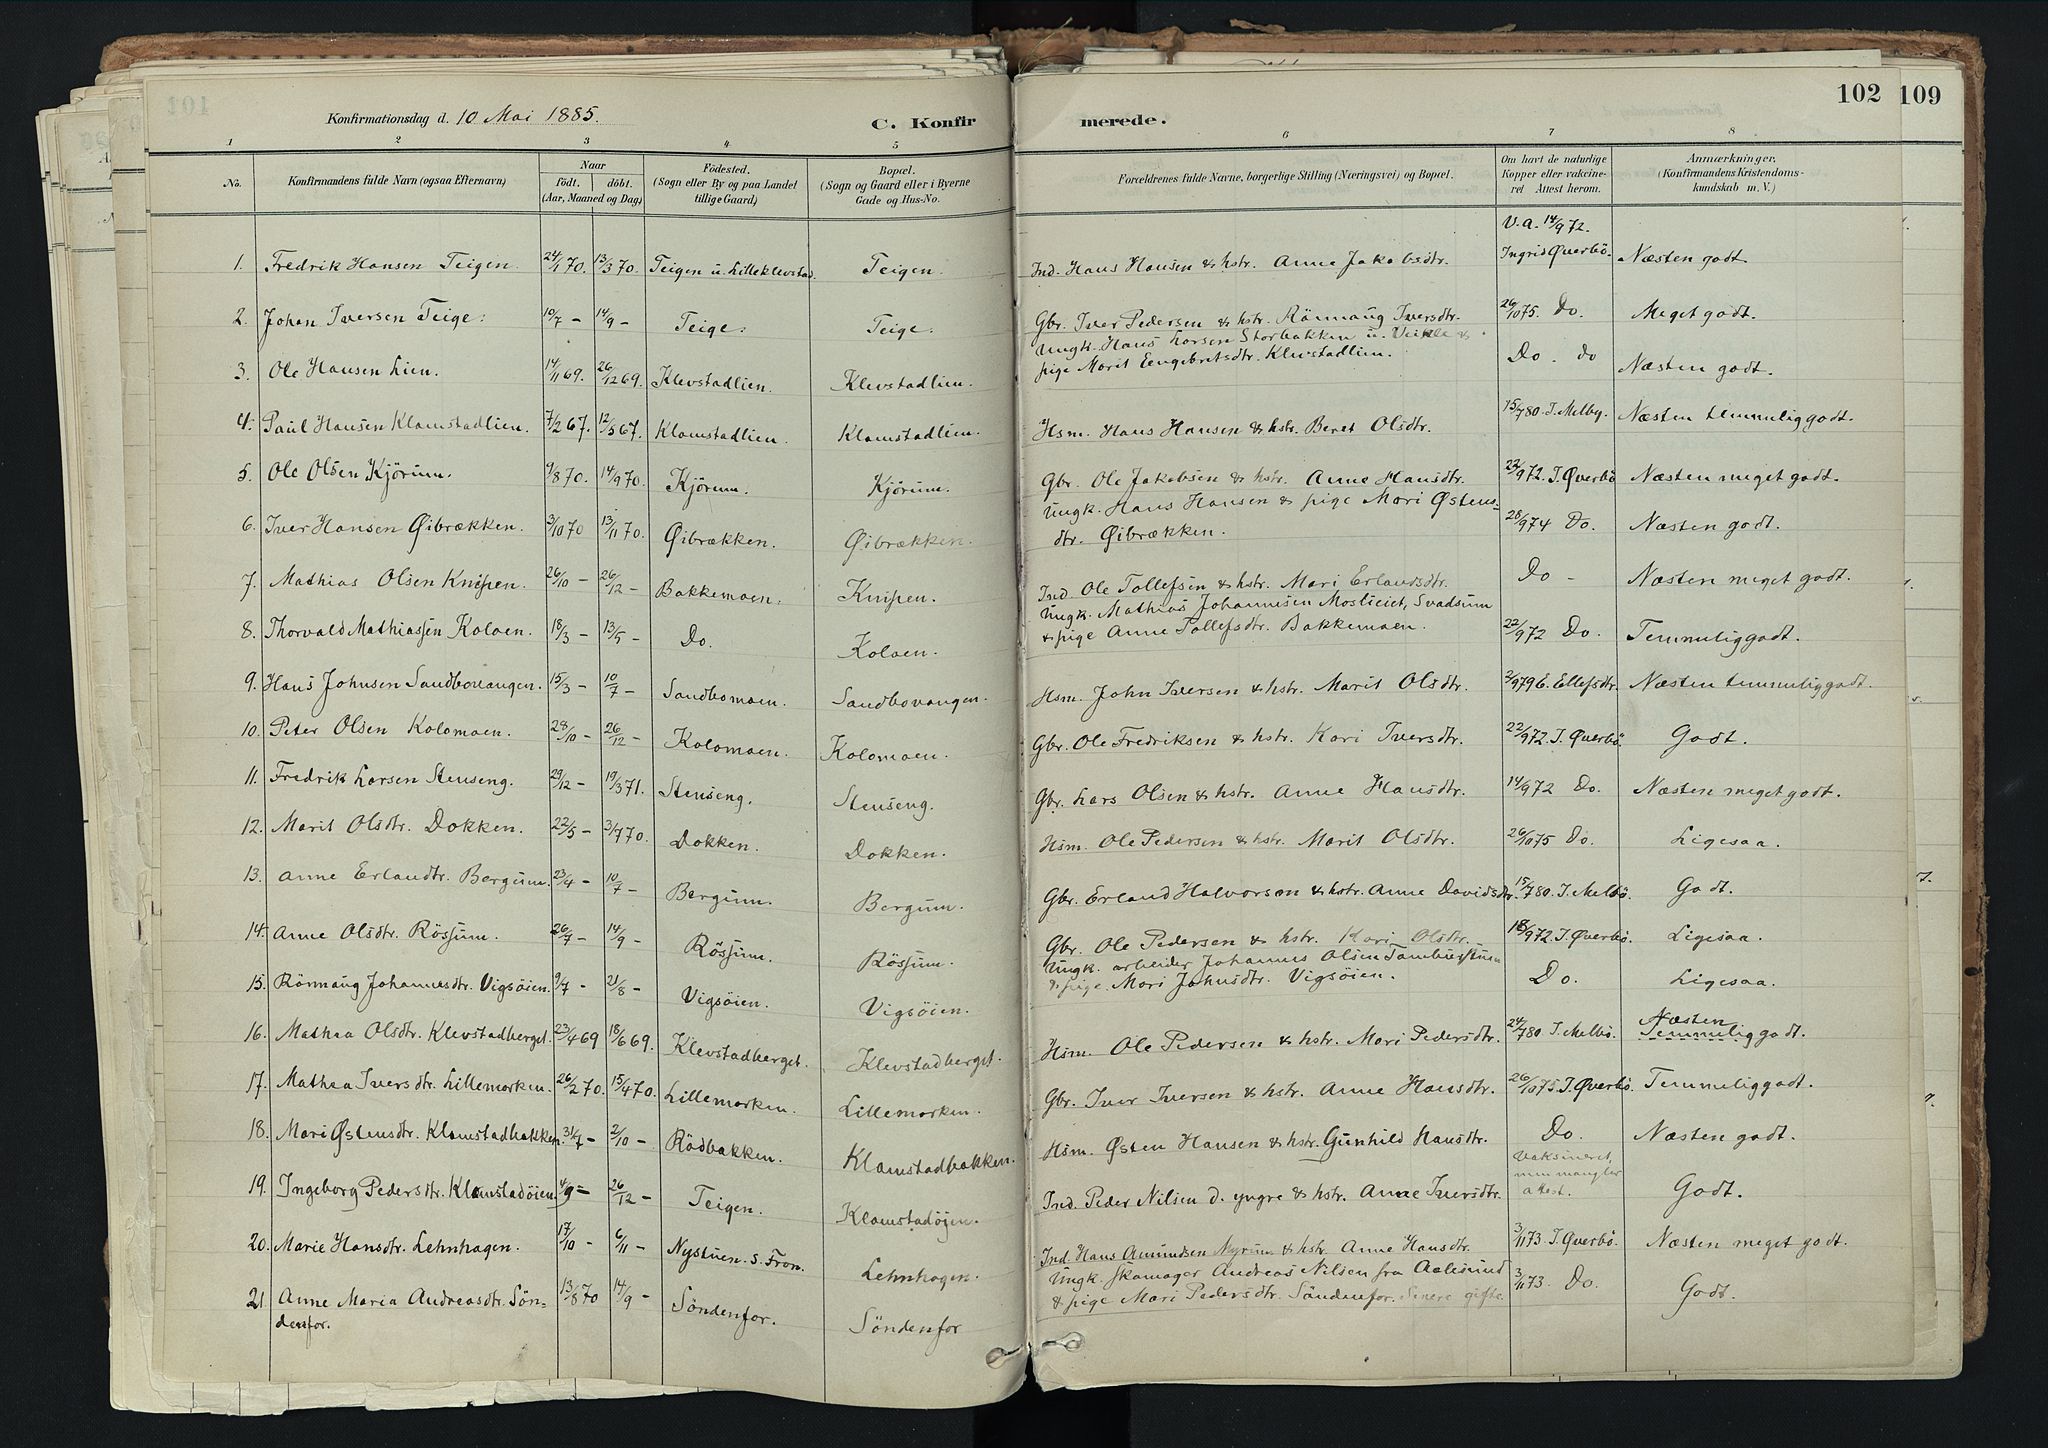 101
Konfirmationsdag d. 10 Mai 1885.
C. Konfirmerede.
102
109
1 2 3 4 5 6 7 8
No. Konfirmandens fulde Navn (ogsaa Efternavn) Naar födt. döbt. (Aar, Maaned og Dag) Födested. (Sogn eller By og paa Landet tillige Gaard) Bopæl. (Sogn og Gaard eller i Byerne Gade og Hus-No. Forældrenes fulde Navne, borgerlige Stilling (Næringsvei) og Bopæl. Om havt de naturlige Kopper eller vakcineret Attest herom. Anmærkninger, (Konfirmandens Kristendomskundskab m. V.)
1. Fredrik Hansen Teigen. 24/1 70. 13/3 70. Teigen u. Lilleklevstad. Teigen. Ind. Hans Hansen & hstr. Anne Jakobsdtr. V.a. 14/9 72. Ingrid Øverbö. Næsten godt.
2. Johan Iversen Teige. 10/7 - 14/9 - Teige. Teige. Gbr. Iver Pedersen & hstr. Rönnaug Iversdtr. 26/10 75. Do. Meget godt.
3. Ole Hansen Lien. 14/11 69. 26/12 69. Klevstadlien. Klevstadlien. Ungk. Hans Larsen Storbakken u. Veikle & pige Marit Engebretsdtr. Klevstadlien. Do. do Næsten godt.
4. Paul Hansen Klamstadlien. 7/2 67. 12/5 67. Klamstadlien. Klamstadlien. Hsm. Hans Hansen & hstr. Beret Olsdtr. 15/7 80. I. Melby. Næsten temmelig godt.
5. Ole Olsen Kjörum. 9/8 70. 14/9 70. Kjörum. Kjörum. Gbr. Ole Jakobsen & hstr. Anne Hansdtr. 22/9 72. I. Øverbö Næsten meget godt.
6. Iver Hansen Øibrækken. 3/10 70 13/11 70. Øibrækken. Øibrækken. Ungk. Hans Hansen & pige Mari Østensdtr. Øibrækken. 28/9 74 Do. Næsten godt.
7. Mathias Olsen Knipen. 26/10 - 26/12 - Bakkemoen. Knipen. Ind. Ole Tollefsen & hstr. Mari Erlandsdtr. Do - Næsten meget godt.
8. Thorvald Mathiassen Koloen. 18/3 - 13/5 - Do. Koloen. Ungk. Mathias Johannesen Moslieiet, Svadsum & pige Anne Tollefsdtr. Bakkemoen. 22/9 72 Do. Temmelig godt.
9. Hans Johnsen Sandbovangen. 15/3 - 10/7 - Sandbomoen. Sandbovangen. Hsm. John Iversen & hstr. Marit Olsdtr. 2/9 79 E. Ellefsdtr. Næsten temmelig godt.
10. Peter Olsen Kolomoen. 28/10 - 26/12 - Kolomoen. Kolomoen. Gbr. Ole Fredriksen & hstr. Kari Iversdtr. 22/9 72. I. Øverbö. Godt.
11. Fredrik Larsen Stenseng. 29/12 - 19/3 71. Stenseng. Stenseng. Gbr. Lars Olsen & hstr. Anne Hansdtr. 14/9 72 Do. Næsten meget godt.
12. Marit Olsdtr. Dokken. 22/5 - 3/7 70. Dokken. Dokken. Hsm. Ole Pedersen & hstr. Marit Olsdtr. 26/10 75 Do. Ligesaa.
13. Anne Erlandtr. Bergum. 23/4 - 10/7 - Bergum. Bergum. Gbr. Erland Halvorson & hstr. Anne Davidsdtr. 15/7 80. I. Melbö. Godt.
14. Anne Olsdtr. Rössum. 26/7 - 14/9 - Rössum. Rössum. Gbr. Ole Pedersen & hstr. Kari Olsdtr. 18/9 72. I. Øverbö. Ligesaa.
15. Rönnaug Johannesdtr. Vigsöien. 9/7 - 21/8 - Vigsöien. Vigsöien. Ungk. arbeider Johannes Olsen & pige Mari Johnsdtr. Vigsöien. Do. Ligesaa.
16. Mathea Olsdtr. Klevstadberget. 23/4 69 18/6 69. Klevstadberget. Klevstadberget. Hsm. Ole Pedersen & hstr. Mari Pedersdtr. 24/7 80 I. Melbö. Næsten Temmelig godt.
17. Mathea Iversdtr. Lillemorken. 26/2 70. 15/4 70. Lillemorken. Lillemorken. Gbr. Iver Iversen & hstr. Anne Hansdtr. 26/10 75. I. Øverbö. Temmelig godt.
18. Mari Østensdtr. Klamstadbakken. 31/7 - 2/10 - Rödbakken. Klamstadbakken. Hsm. Østen Hansen & hstr. Gunhild Hansdtr. Do. Næsten godt.
19. Ingeborg Pedersdtr. Klamstadöien. 4/9 - 26/12 - Teigen. Klamstadöjen. Ind. Peder Nilsen d. yngre & hstr. Anne Iversdtr. Vaksineret, men mangler attest. Godt.
20. Marie Hansdtr. Lehnhagen. 17/10 - 6/11 - Nystuen. S. Fron. Lehnhagen. Ind. Hans Amundsen Myrum & hstr. Anne Hansdtr. 3/11 73. I. Øverbö. Næsten meget godt.
21. Anne Maria Andreasdtr. Söndenfor. 13/8 70 14/9 - Söndenfor. Söndenfor Ungk. skomager Andreas Nilsen fra Aalesund & pige Mari Pedersdtr. Söndenfor. Senere gifte. 3/11 73. Do. Godt.